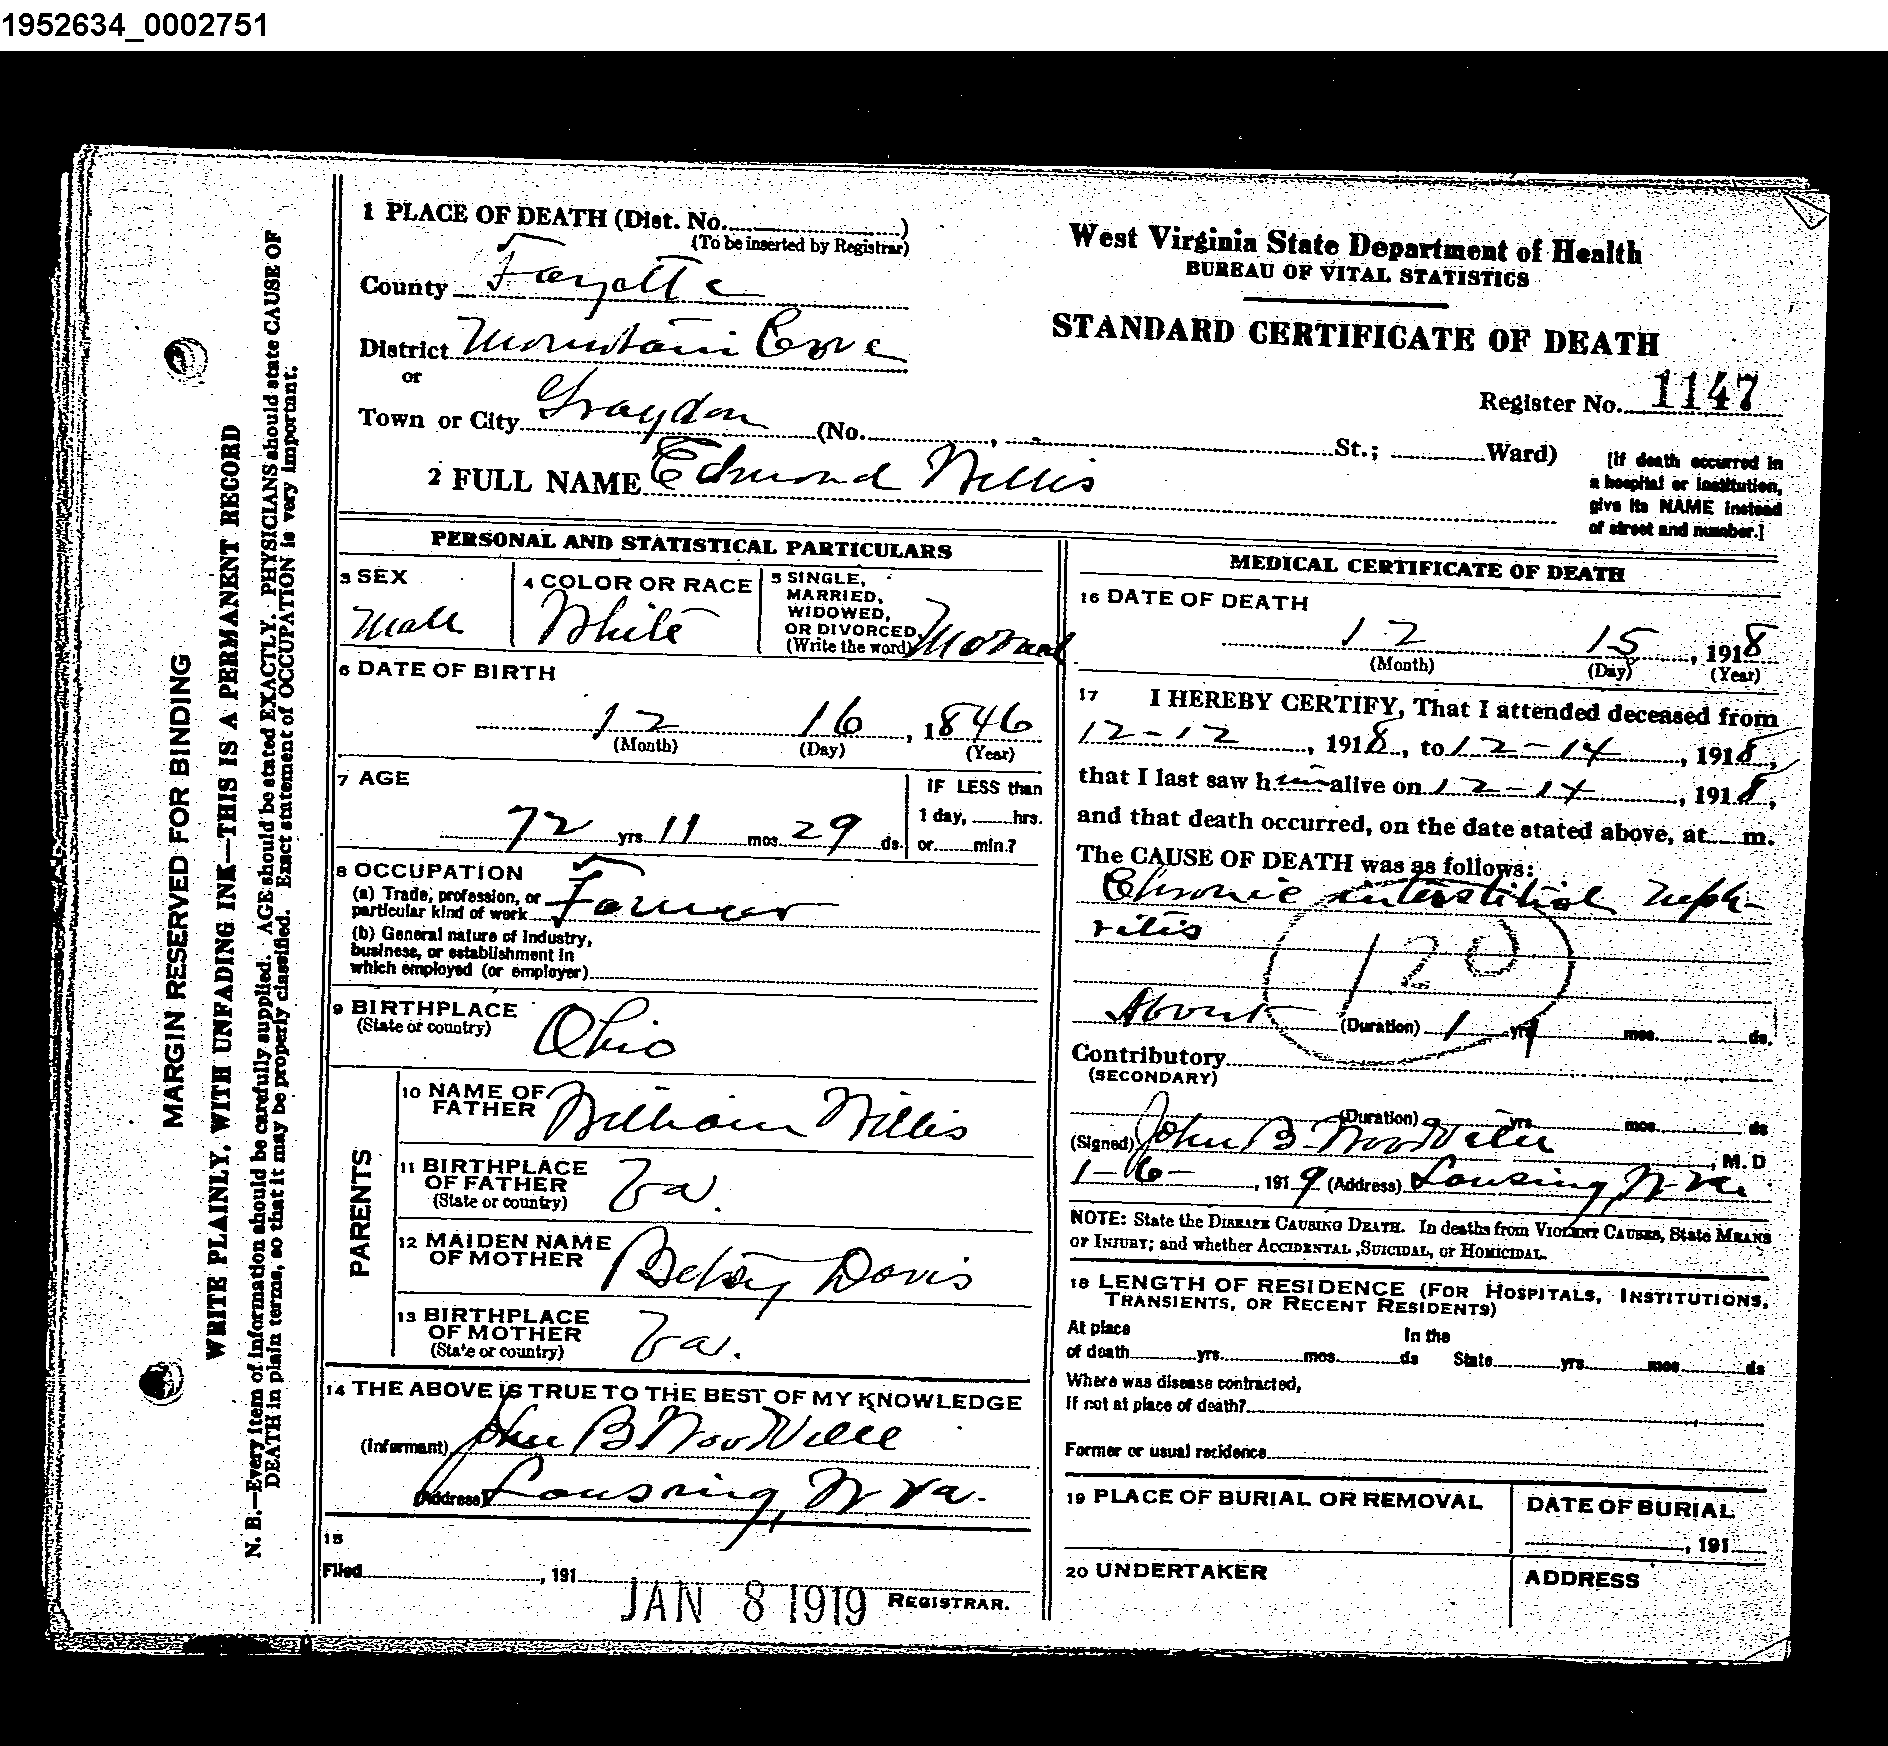 1952634_0002751
1 PLACE OF DEATH (Dist. No. )
(To be inserted by Registrar)
County Fayette
District Mountain Cove
or
Town or City Graydon (No. , St.; Ward)
2 FULL NAME Edmond Willis
West Virginia State Department of Health
BUREAU OF VITAL STATISTICS
STANDARD CERTIFICATE OF DEATH
Register No. 1147
[If death occurred in
a hospital or institution,
give its NAME instead
of street and number.]
PERSONAL AND STATISTICAL PARTICULARS
3 SEX
Male
4 COLOR OR RACE
White
5 SINGLE,
MARRIED,
WIDOWED,
OR DIVORCED
(Write the word)
6 DATE OF BIRTH
12 16, 1846
(Month) (Day) (Year)
7 AGE
72 yrs 11 mos. 29 ds.
IF LESS than
1 day, hrs.
or min.?
8 OCCUPATION
(a) Trade, profession, or
particular kind of work Farmer
(b) General nature of industry,
business, or establishment in
which employed (or employer)
9 BIRTHPLACE
(State or country) Ohio
PARENTS
10 NAME OF
FATHER William Willis
11 BIRTHPLACE
OF FATHER
(State or country) Va.
12 MAIDEN NAME
OF MOTHER Betsy Davis
13 BIRTHPLACE
OF MOTHER
(State or country) Va.
14 THE ABOVE IS TRUE TO THE BEST OF MY KNOWLEDGE
(Informant) John B
(Address) Lansing, W Va.
15
Filed , 191
JAN 8 1919 REGISTRAR.
MEDICAL CERTIFICATE OF DEATH
16 DATE OF DEATH
12 15, 1918
(Month) (Day) (Year)
17 I HEREBY CERTIFY, That I attended deceased from
12-12, 1918, to 12-14, 1918,
that I last saw him alive on 12-14, 1918,
and that death occurred, on the date stated above, at m.
The CAUSE OF DEATH was as follows:
Chronic interstitial Neph-
ritis
120
About (Duration) 1 yrs mos. ds.
Contributory
(SECONDARY)
(Duration) yrs mos. ds
(Signed) John B , M. D
1-6-, 1919 (Address) Lansing, W Va.
NOTE: State the DISEASE CAUSING DEATH. In deaths from VIOLENT CAUSES, State MEANS
OF INJURY; and whether ACCIDENTAL ,SUICIDAL, or HOMICIDAL.
18 LENGTH OF RESIDENCE (FOR HOSPITALS, INSTITUTIONS,
TRANSIENTS, OR RECENT RESIDENTS)
At place In the
of death yrs. mos. ds State yrs. mos. ds
Where was disease contracted,
If not at place of death?
Former or usual residence
19 PLACE OF BURIAL OR REMOVAL
DATE OF BURIAL
, 191
20 UNDERTAKER
ADDRESS
MARGIN RESERVED FOR BINDING
WRITE PLAINLY, WITH UNFADING INK—THIS IS A PERMANENT RECORD
N. B.—Every item of information should be carefully supplied. AGE should be stated EXACTLY. PHYSICIANS should state CAUSE OF
DEATH in plain terms, so that it may be properly classified. Exact statement of OCCUPATION is very important.